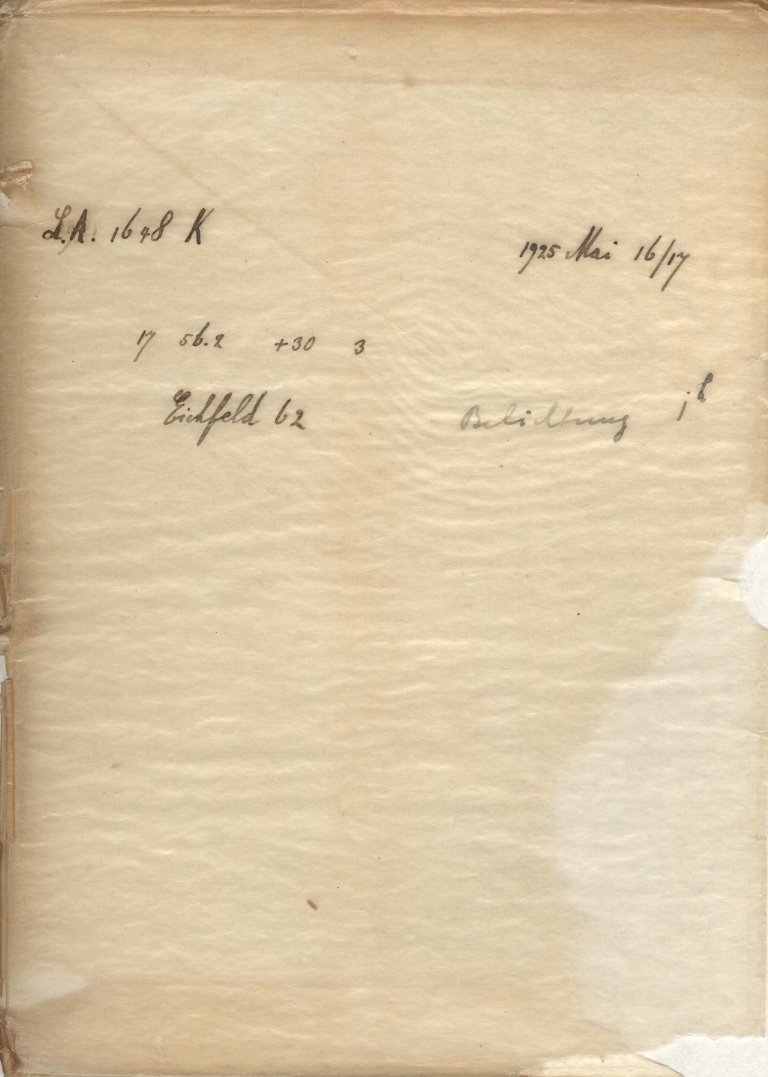 L.A. 1648 K
1925 Mai 16/17
17 56.2 +30 3
Eichfeld 62 Belichtung 1h